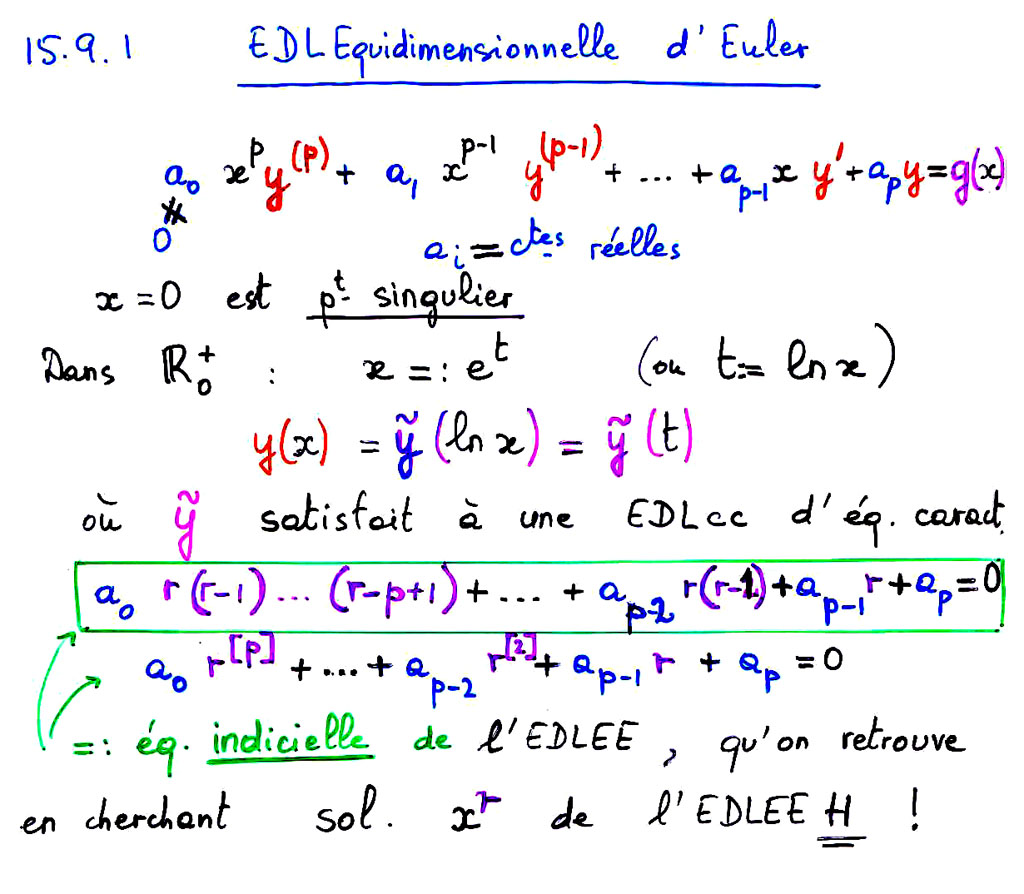 15.9.1 EDLEquidimensionnelle d'Euler
a₀ xᵖ y⁽ᵖ⁾ + a₁ xᵖ⁻¹ y⁽ᵖ⁻¹⁾ + ... + aₚ₋₁ x y' + aₚ y = g(x)
≠
0
aᵢ = cᵗᵉˢ réelles
x = 0 est pᵗ singulier
Dans ℝ₀⁺ : x =: eᵗ (ou t := ln x)
y(x) = ỹ(ln x) = ỹ(t)
où ỹ satisfait à une EDLcc d'éq. caract.
a₀ r(r-1)... (r-p+1) + ... + aₚ₋₂ r(r-1) + aₚ₋₁ r + aₚ = 0
a₀ r^[p] + ... + aₚ₋₂ r^[2] + aₚ₋₁ r + aₚ = 0
=: éq. indicielle de l'EDLEE, qu'on retrouve
en cherchant sol. xʳ de l'EDLEE H !